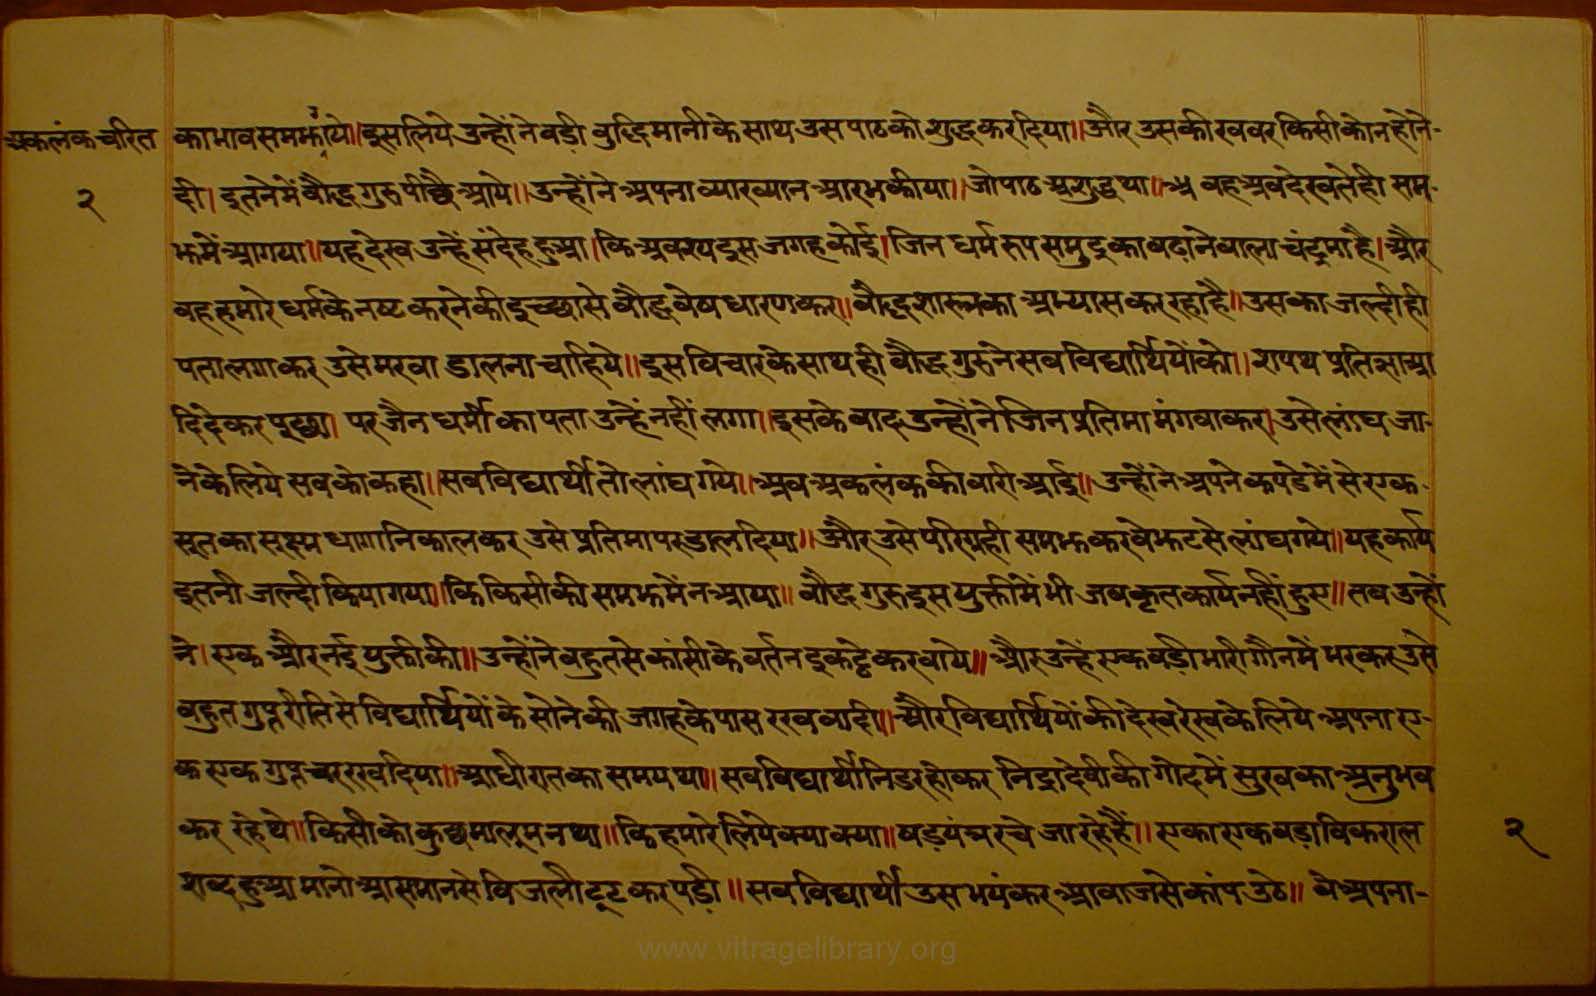 अकलंक चरित
२
का भाव समझांये॥ इसलिये उन्होंने वड़ी वुद्धिमानी के साथ उस पाठ को शुद्ध कर दिया॥ और उसकी खवर किसी को न होने-
दी। इतने में वौद्ध गुरु पीछै आये॥ उन्होंने अपना व्याख्यान आरंभ कीया॥ जो पाठ अशुद्ध था॥ वह अव देखते ही सम-
झ में आगया॥ यह देख उन्हें संदेह हुआ। कि अवश्य इस जगह कोई। जिन धर्म रुप समुद्र का वढ़ाने वाला चंद्रमा है। और
वह हमारे धर्म के नष्ट करने की इच्छा से वौद्ध वेष धारण कर॥ वौद्ध शास्त्र का अभ्यास कर रहा है॥ उसका जल्दी ही
पता लगाकर उसे मरवा डालना चाहिये॥ इस विचार के साथ ही वौद्ध गुरु ने सव विद्यार्थियों को॥ शपथ प्रतिज्ञा आ
दि देकर पूछा। पर जैन धर्मी का पता उन्हें नहीं लगा॥ इसके वाद उन्होंने जिन प्रतिमा मंगवाकर। उसे लांघ जा-
ने के लिये सव को कहा॥ सव विद्यार्थी तो लांघ गये॥ अव अकलंक की वारी आई॥ उन्होंने अपने कपडे में से एक-
सूत का सूक्ष्म धागा निकाल कर उसे प्रतिमा पर डाल दिया॥ और उसे परिग्रही समझ कर वे झट से लांघ गये॥ यह कार्य
इतनी जल्दी किया गया॥ कि किसी की समझ में न आया॥ वौद्ध गुरु इस युक्ती में भी जव कृतकार्य नहीं हुए॥ तव उन्हों
ने। एक और नई युक्ती की॥ उन्होंने वहुत से कांसी के वर्तन इकट्ठे करवाये॥ और उन्हें एक वड़ी भारी गौन में भरकर उसे
वहुत गुप्त रीति से विद्यार्थियों के सोने की जगह के पास रखवा दी॥ और विद्यार्थियों की देखरेख के लिये अपना ए-
क एक गुप्तचर रख दिया॥ आधी रात का समय था॥ सव विद्यार्थी निडर होकर निद्रादेवी की गोद में सुख का अनुभव
कर रहे थे॥ किसी को कुछ मालूम न था॥ कि हमारे लिये क्या क्या॥ षड़यंत्र रचे जा रहे हैं॥ एका एक वड़ा विकराल
शव्द हुआ मानो आसमान से विजली टूट कर पड़ी॥ सव विद्यार्थी उस भयंकर आवाज से कांप उठे॥ वे अपना-
२
www.vitragelibrary.org